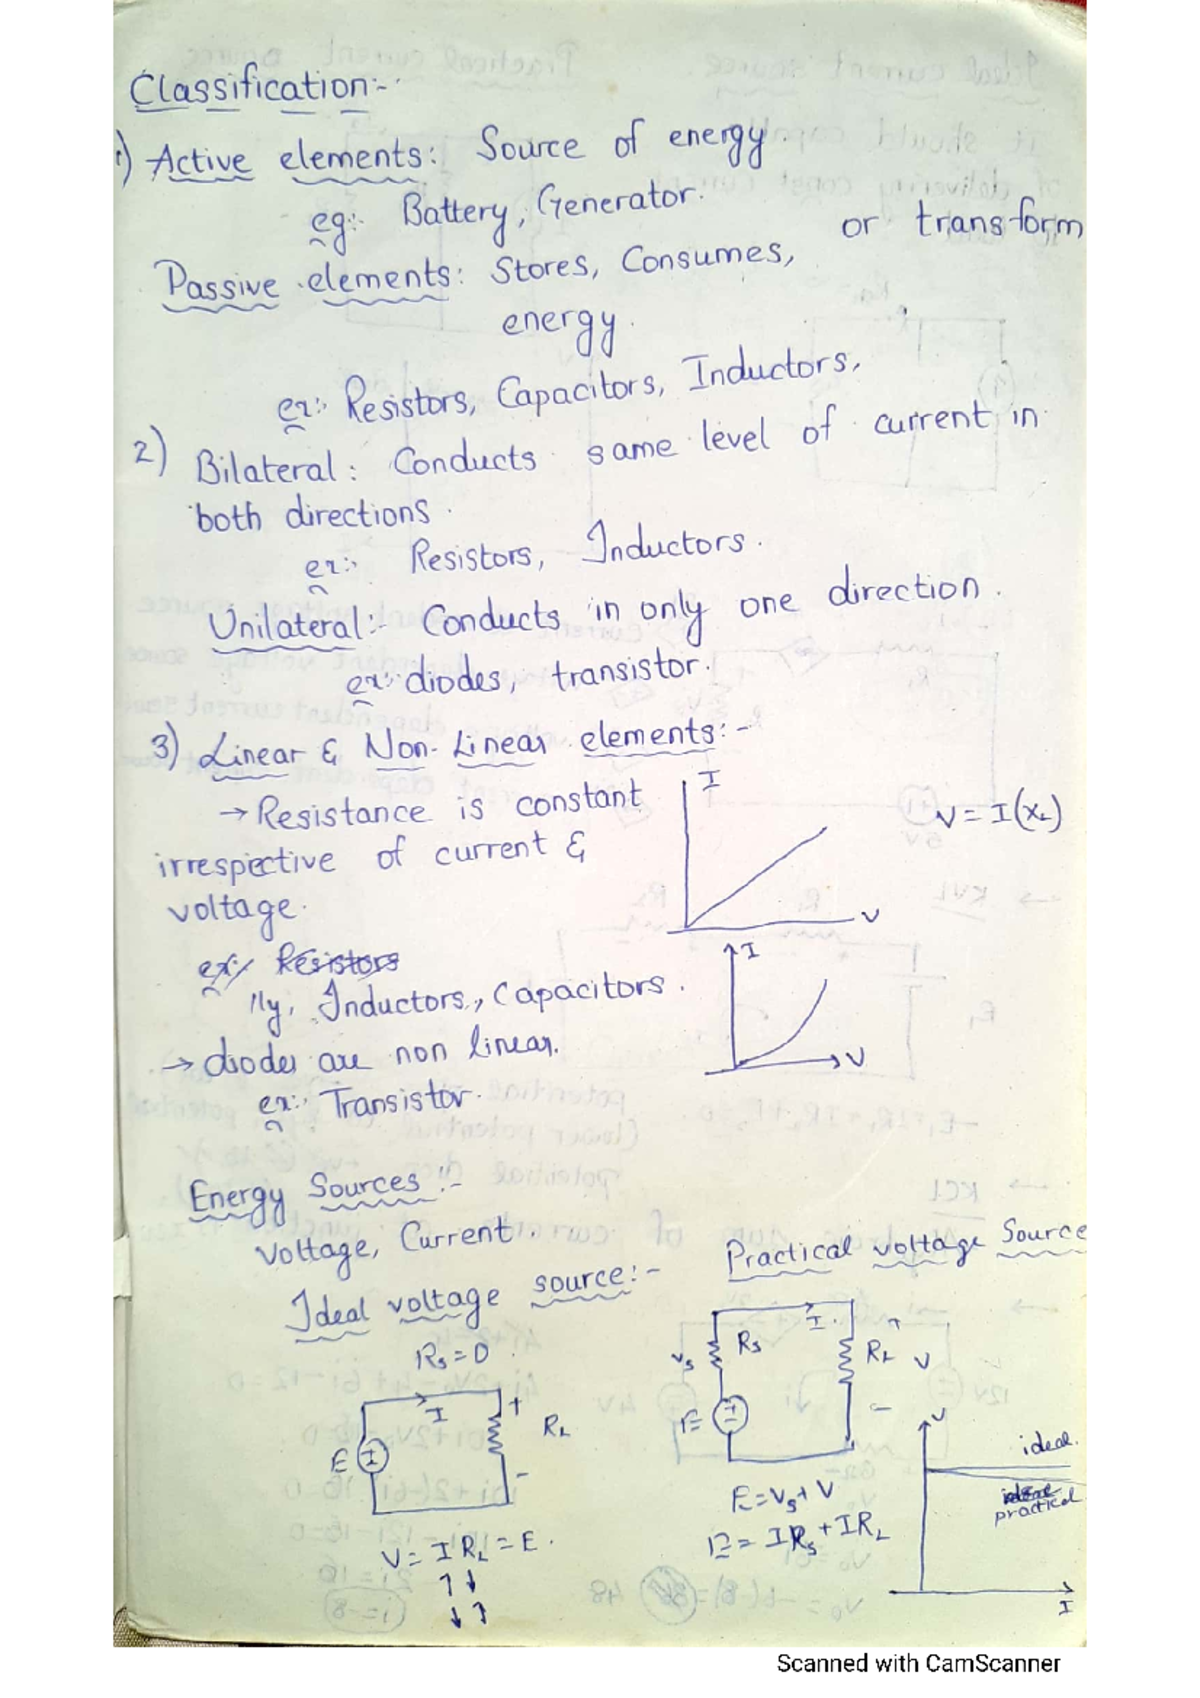 Classification:-
1) Active elements: Source of energy.
eg:- Battery, Generator.
Passive elements: Stores, Consumes, or transform
energy.
ex:- Resistors, Capacitors, Inductors.
2) Bilateral: Conducts same level of current in
both directions.
ex:- Resistors, Inductors.
Unilateral:- Conducts in only one direction.
ex:- diodes, transistor.
3) Linear & Non-Linear elements:-
→ Resistance is constant
irrespective of current &
voltage.
I
V
V = I(XL)
ex:/ Resistors
lly, Inductors, Capacitors.
→ diodes are non linear.
ex:- Transistor.
I
V
Energy Sources:-
Voltage, Current.
Ideal voltage source:-
Rs = 0
E
I
+
-
RL
V = I RL = E.
↑ ↓
↓ ↑
Practical voltage Source
Vs
Rs
I
RL
+
V
-
E
E = Vs + V
E = IRs + IRL
V
ideal.
practical
I
Scanned with CamScanner